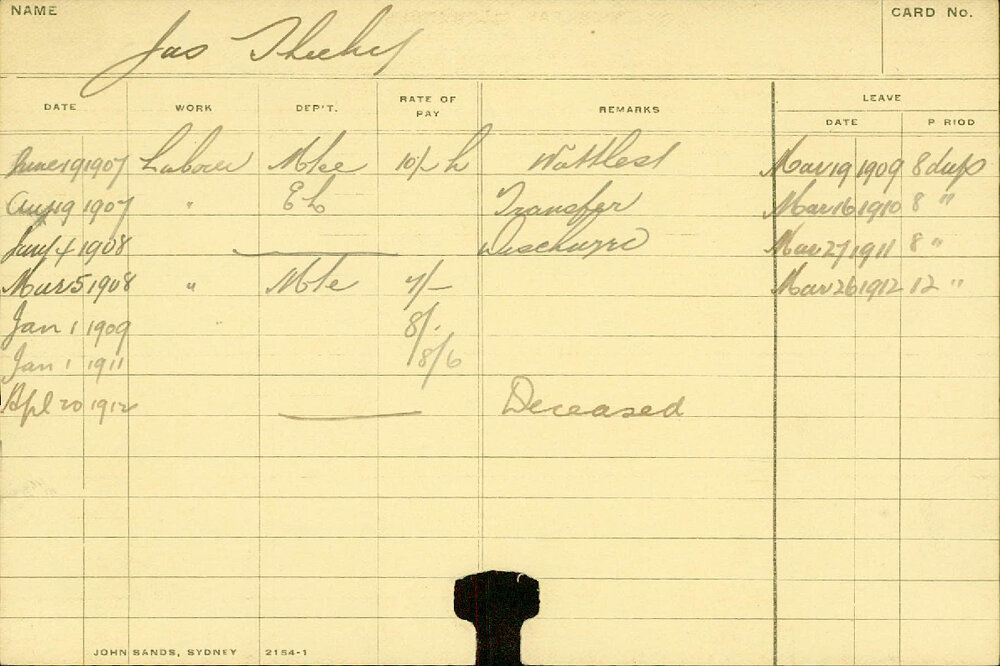 NAME
Jas
CARD No.
DATE WORK DEP'T. RATE OF PAY REMARKS LEAVE
DATE P RIOD
June 19 1907 Labour Mtce Mar 19 1909 8 days
Aug 19 1907 " Transfer Mar 16 1910 8 "
Jany 4 1908 Discharge Mar 27 1911 8 "
Mar 5 1908 " Mtce 7/- Mar 26 1912 12 "
Jan 1 1909 8/-
Jan 1 1911 8/6
Apl 20 1912 Deceased
JOHN SANDS, SYDNEY 2154-1